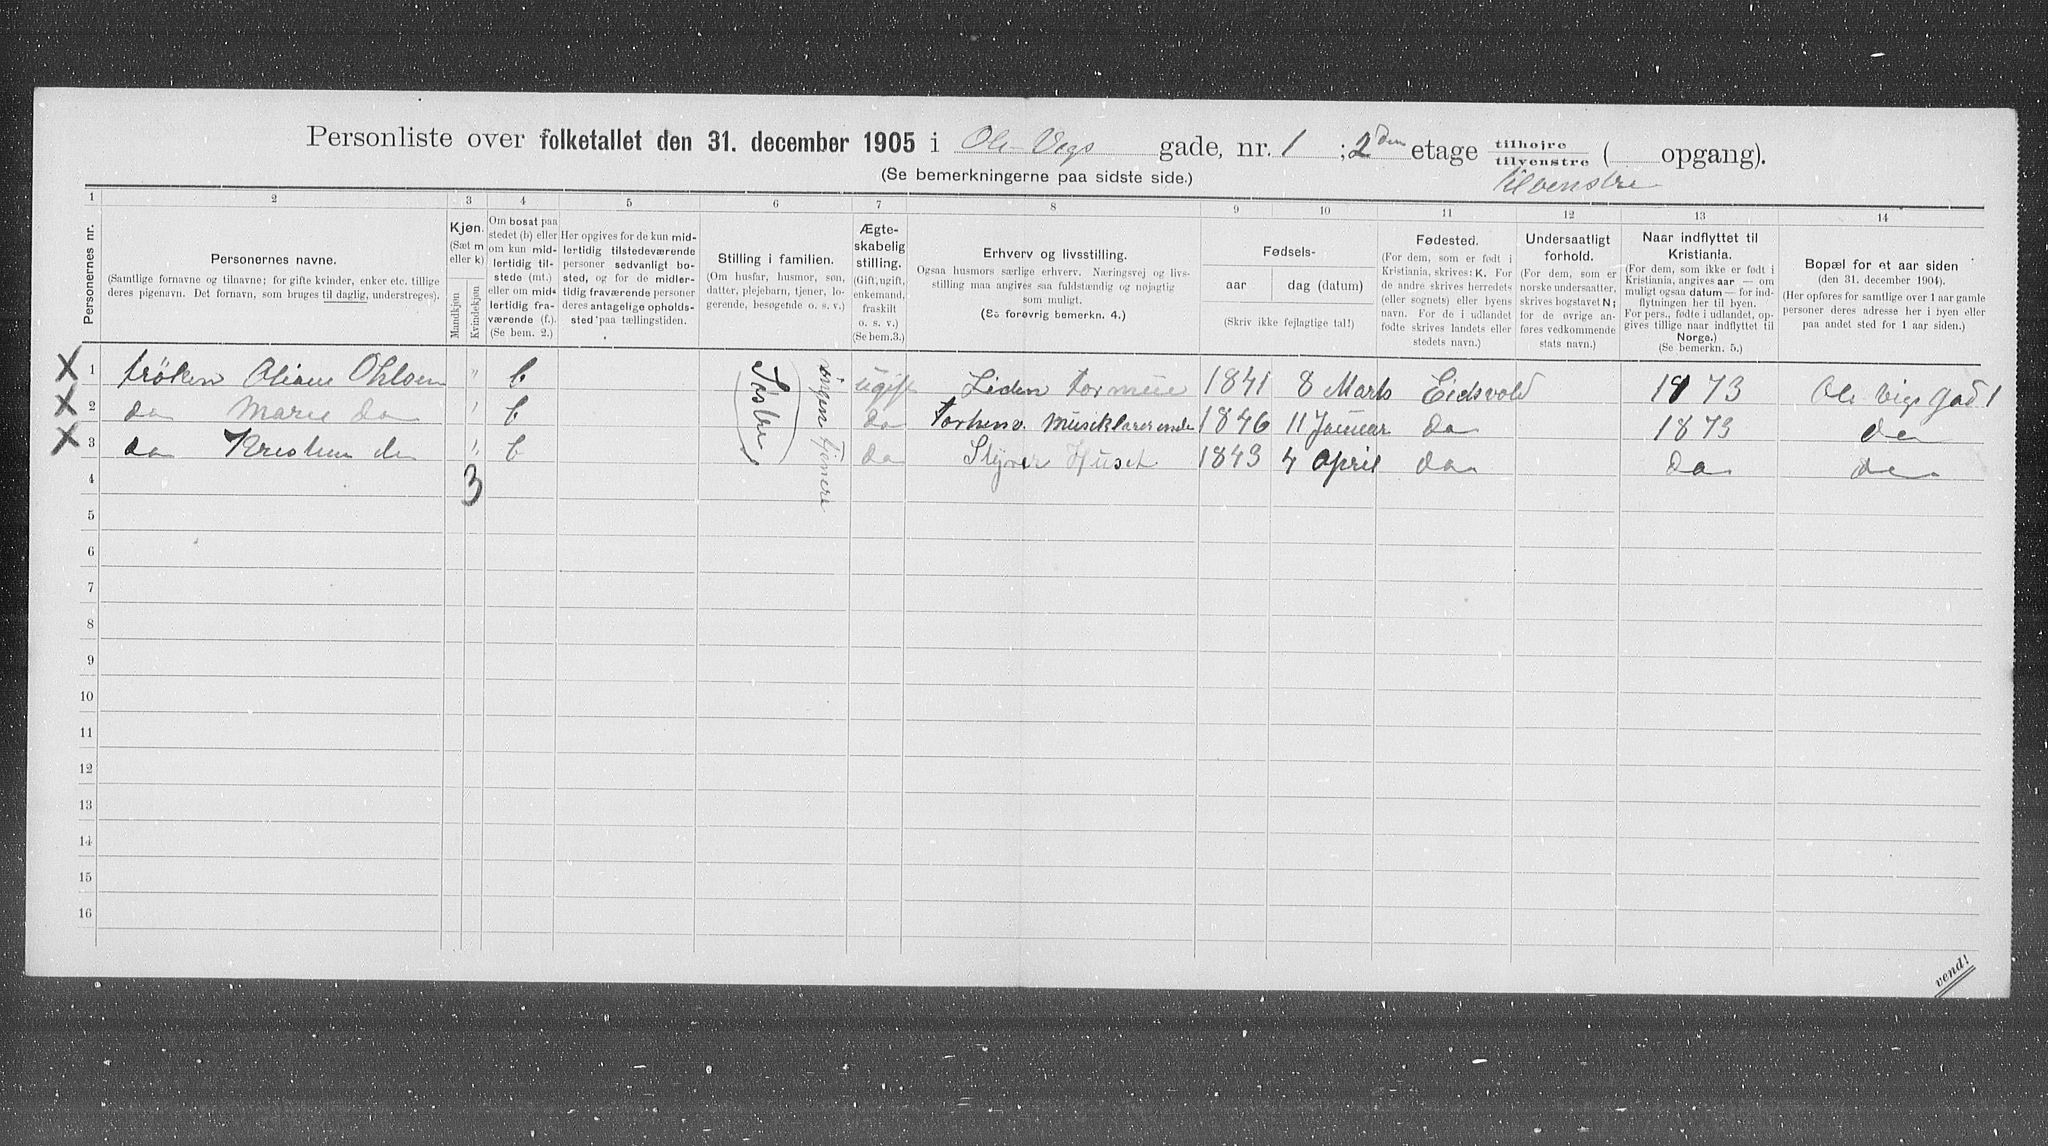 Personliste over folketallet den 31. december 1905 i Ole Vigs gade, nr. 1 ; 2den etage tilhøjre tilvenstre ( opgang).
(Se bemerkningerne paa sidste side.) tilvenstre
1 2 3 4 5 6 7 8 9 10 11 12 13 14
Personernes nr.
Personernes navne.
(Samtlige fornavne og tilnavne; for gifte kvinder, enker etc. tillige
deres pigenavn. Det fornavn, som bruges til daglig, understreges).
Kjøn.
(Sæt m
eller k).
Mandkjøn
Kvindekjøn
Om bosat paa
stedet (b) eller
om kun mid-
lertidig til-
stede (mt.)
eller om mid-
lertidig fra-
værende (f.).
(Se bem. 2.)
Her opgives for de kun mid-
lertidig tilstedeværende
personer sedvanligt bo-
sted, og for de midler-
tidig fraværende personer
deres antagelige opholds-
sted paa tællingstiden.
Stilling i familien.
(Om husfar, husmor, søn,
datter, plejebarn, tjener, lo-
gerende, besøgende o. s. v.)
Ægte-
skabelig
stilling.
(Gift, ugift,
enkemand,
fraskilt
o. s. v.)
(Se bem.3.)
Erhverv og livsstilling.
Ogsaa husmors særlige erhverv. Næringsvej og livs-
stilling maa angives saa fuldstændig og nøjagtig
som muligt.
(Se forøvrig bemerkn. 4.)
Fødsels-
aar dag (datum)
(Skriv ikke fejlagtige tal!)
Fødested.
(For dem, som er født i
Kristiania, skrives: K. For
de andre skrives herredets
(eller sognets) eller byens
navn. For de i udlandet
fødte skrives landets eller
stedets navn.)
Undersaatligt
forhold.
(For dem, som er
norske undersaatter,
skrives bogstavet N;
for de øvrige an-
føres vedkommende
stats navn.)
Naar indflyttet til
Kristiania.
(For dem, som ikke er født i
Kristiania, angives aar — om
muligt ogsaa datum — for ind-
flytningen her til byen.
For pers., fødte i udlandet, op-
gives tillige naar indflyttet til
Norge.)
(Se bemerkn. 5.)
Bopæl for et aar siden
(den 31. december 1904).
(Her opføres for samtlige over 1 aar gamle
personer deres adresse her i byen eller
paa andet sted for 1 aar siden.)
X 1 frøken Oliane Ohlsen " b Søstre ingen tjenere ugift Liden formue 1841 8 Marts Eidsvold 1873 Ole Vigs Gad 1
X 2 do Marie do " b do Musiklærerinde 1846 11 Januar do 1873 do
X 3 do do " b do Styrer Huset 1843 4 April do do do
4 3
5
6
7
8
9
10
11
12
13
14
15
16
vend!